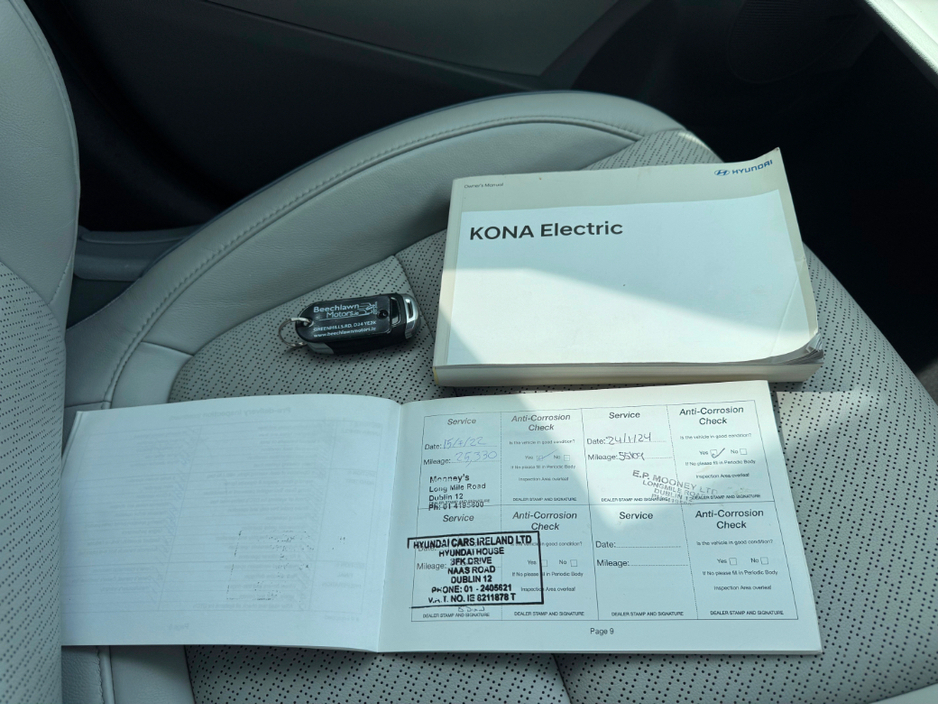 Owner's Manual
HYUNDAI
KONA Electric
Beechlawn
Motors.ie
GREENHILLS RD, D24 YE2N
www.beechlawnmotors.ie
Service
Date:
Mileage: 25,330
Mooney's
Long Mile Road
Dublin 12
Ph: 01
DEALER STAMP AND SIGNATURE
Anti-Corrosion
Check
Is the vehicle in good condition?
Yes No
If No please fill in Periodic Body
Inspection Area overleaf
DEALER STAMP AND SIGNATURE
Service
Date: 24/1/24
Mileage:
E.P. MOONEY LTD.
LONGMILE ROAD
DUBLIN
DEALER STAMP AND SIGNATURE
Anti-Corrosion
Check
Is the vehicle in good condition?
Yes No
If No please fill in Periodic Body
Inspection Area overleaf
DEALER STAMP AND SIGNATURE
Service
Mileage:
HYUNDAI CARS IRELAND LTD
HYUNDAI HOUSE
SFK DRIVE
NAAS ROAD
DUBLIN 12
PHONE: 01 - 2405621
V.A.T. NO. IE 6211878 T
DEALER STAMP AND SIGNATURE
Anti-Corrosion
Check
Is the vehicle in good condition?
Yes No
If No please fill in Periodic Body
Inspection Area overleaf
DEALER STAMP AND SIGNATURE
Service
Date:
Mileage:
DEALER STAMP AND SIGNATURE
Anti-Corrosion
Check
Is the vehicle in good condition?
Yes No
If No please fill in Periodic Body
Inspection Area overleaf
DEALER STAMP AND SIGNATURE
Page 9